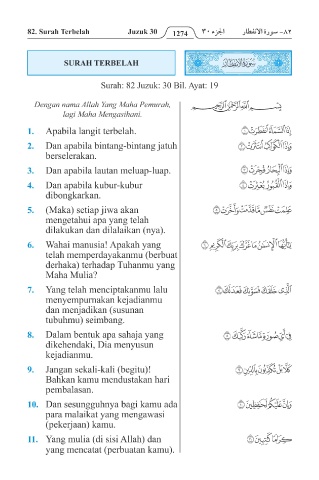 82. Surah Terbelah Juzuk 30 1274 الجزء ٣٠ ٨٢- سورة الانفطار
SURAH TERBELAH سورة الانفطار
Surah: 82 Juzuk: 30 Bil. Ayat: 19
Dengan nama Allah Yang Maha Pemurah,
lagi Maha Mengasihani.
بِسْمِ ٱللَّهِ ٱلرَّحْمَٰنِ ٱلرَّحِيمِ
1. Apabila langit terbelah.
إِذَا ٱلسَّمَآءُ ٱنفَطَرَتْ ١
2. Dan apabila bintang-bintang jatuh
berselerakan.
وَإِذَا ٱلْكَوَاكِبُ ٱنتَثَرَتْ ٢
3. Dan apabila lautan meluap-luap.
وَإِذَا ٱلْبِحَارُ فُجِّرَتْ ٣
4. Dan apabila kubur-kubur
dibongkarkan.
وَإِذَا ٱلْقُبُورُ بُعْثِرَتْ ٤
5. (Maka) setiap jiwa akan
mengetahui apa yang telah
dilakukan dan dilalaikan (nya).
عَلِمَتْ نَفْسٌ مَّا قَدَّمَتْ وَأَخَّرَتْ ٥
6. Wahai manusia! Apakah yang
telah memperdayakanmu (berbuat
derhaka) terhadap Tuhanmu yang
Maha Mulia?
يَٰٓأَيُّهَا ٱلْإِنسَٰنُ مَا غَرَّكَ بِرَبِّكَ ٱلْكَرِيمِ ٦
7. Yang telah menciptakanmu lalu
menyempurnakan kejadianmu
dan menjadikan (susunan
tubuhmu) seimbang.
ٱلَّذِى خَلَقَكَ فَسَوَّىٰكَ فَعَدَلَكَ ٧
8. Dalam bentuk apa sahaja yang
dikehendaki, Dia menyusun
kejadianmu.
فِىٓ أَىِّ صُورَةٍ مَّا شَآءَ رَكَّبَكَ ٨
9. Jangan sekali-kali (begitu)!
Bahkan kamu mendustakan hari
pembalasan.
كَلَّا بَلْ تُكَذِّبُونَ بِٱلدِّينِ ٩
10. Dan sesungguhnya bagi kamu ada
para malaikat yang mengawasi
(pekerjaan) kamu.
وَإِنَّ عَلَيْكُمْ لَحَٰفِظِينَ ١٠
11. Yang mulia (di sisi Allah) dan
yang mencatat (perbuatan kamu).
كِرَامًا كَٰتِبِينَ ١١